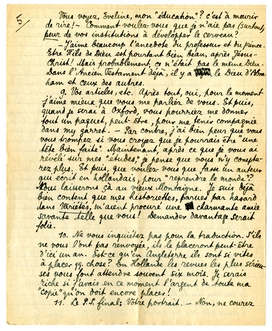 5
Vous voyez, Evelina, mon "éducation"? c'est à mourir
de rire! — Comment voulez vous que je n'aie pas (surtout)
peur de vos institutions à développer le cerveau?
— J'aime beaucoup l'anecdote du professeur et du Prince.
Etre Fils de Dieu est pourtant bien bien après Jésus-
Christ! Mais probablement, ce n'était pas le même Dieu.
Dans l'Ancien Testament déjà, il y a le Dieu d'Abra
ham et ceux des autres.
9. Vos articles, etc. Après tout, oui, pour le moment
j'aime mieux que vous me parliez de vous. Et puis,
quand je serai à Oxford, vous pourrez me donner
tout un paquet, peut-être, pour me tenir compagnie
dans my garret. — Par contre, j'ai bien peur que vous
vous trompiez si vous croyez que je pourrais être "une
tête bien faite". Maintenant, après ce que je vous ai
révélé sur mes "études", je pense que vous n'y compte-
rez plus. Et puis, que voulez-vous que fasse un auteur
que écrit en hollandais pour "reprendre le monde"?
Nous laisserons ça au vieux Montaigne. Je suis déjà
bien content que mes historiettes, parues par hasard
dans Vrouwen, m'aient procuré une charmante amie
savante telle que vous! Demander davantage serait
folie.
10. Ne vous inquiétez pas pour la traduction. S'ils
ne vous l'ont pas renvoyée, ils la placeront peut-être
d'ici un an. Est-ce qu'en Angleterre ils sont si vites
à placer qq. chose? En Hollande les revues les plus sérieu-
ses nous font attendre souvent six mois. Je serais
riche si j'avais en ce moment l'argent de toute ma
"copie" qu'on doit encore placer!
11. Le P.S. final: Votre portrait. — Non, ne courez